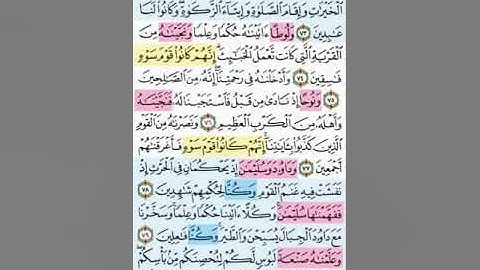 ٱلْخَيْرَٰتِ وَإِقَامَ ٱلصَّلَوٰةِ وَإِيتَآءَ ٱلزَّكَوٰةِ وَكَانُوا۟ لَنَا
عَٰبِدِينَ ٧٣ وَلُوطًا ءَاتَيْنَٰهُ حُكْمًا وَعِلْمًا وَنَجَّيْنَٰهُ مِنَ
ٱلْقَرْيَةِ ٱلَّتِى كَانَت تَّعْمَلُ ٱلْخَبَٰٓئِثَ إِنَّهُمْ كَانُوا۟ قَوْمَ سَوْءٍ
فَٰسِقِينَ ٧٤ وَأَدْخَلْنَٰهُ فِى رَحْمَتِنَآ إِنَّهُۥ مِنَ ٱلصَّٰلِحِينَ
٧٥ وَنُوحًا إِذْ نَادَىٰ مِن قَبْلُ فَٱسْتَجَبْنَا لَهُۥ فَنَجَّيْنَٰهُ
وَأَهْلَهُۥ مِنَ ٱلْكَرْبِ ٱلْعَظِيمِ ٧٦ وَنَصَرْنَٰهُ مِنَ ٱلْقَوْمِ
ٱلَّذِينَ كَذَّبُوا۟ بِـَٔايَٰتِنَآ إِنَّهُمْ كَانُوا۟ قَوْمَ سَوْءٍ فَأَغْرَقْنَٰهُمْ
أَجْمَعِينَ ٧٧ وَدَاوُۥدَ وَسُلَيْمَٰنَ إِذْ يَحْكُمَانِ فِى ٱلْحَرْثِ إِذْ
نَفَشَتْ فِيهِ غَنَمُ ٱلْقَوْمِ وَكُنَّا لِحُكْمِهِمْ شَٰهِدِينَ ٧٨
فَفَهَّمْنَٰهَا سُلَيْمَٰنَ وَكُلًّا ءَاتَيْنَا حُكْمًا وَعِلْمًا وَسَخَّرْنَا
مَعَ دَاوُۥدَ ٱلْجِبَالَ يُسَبِّحْنَ وَٱلطَّيْرَ وَكُنَّا فَٰعِلِينَ ٧٩
وَعَلَّمْنَٰهُ صَنْعَةَ لَبُوسٍ لَّكُمْ لِتُحْصِنَكُم مِّنۢ بَأْسِكُمْ